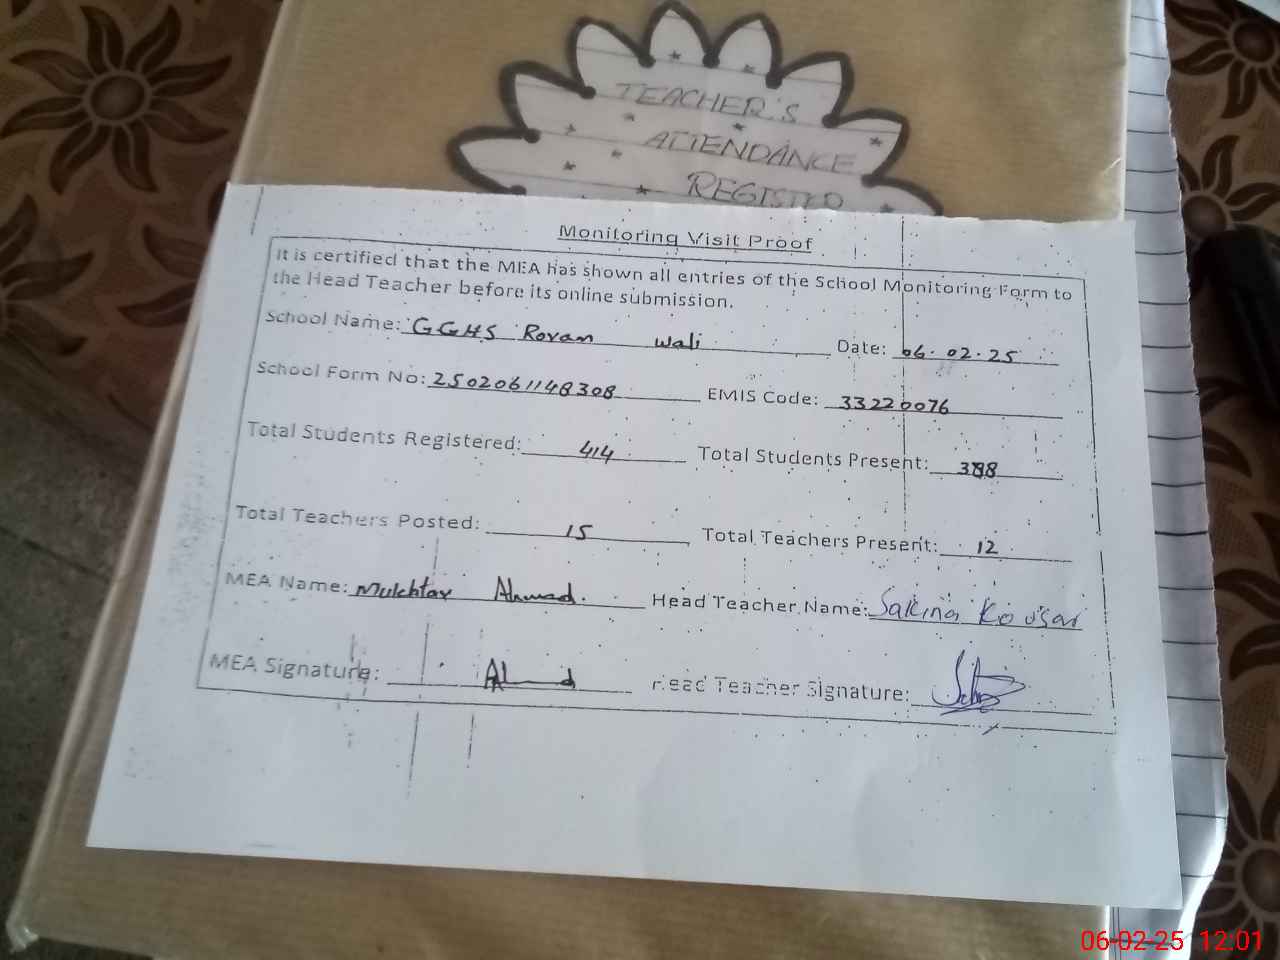 TEACHER'S
ATTENDANCE
REGISTER
Monitoring Visit Proof
It is certified that the MEA has shown all entries of the School Monitoring Form to
the Head Teacher before its online submission.
School Name: GGHS Rovan Wali Date: 06.02.25
School Form No: 2502061148308 EMIS Code: 33220076
Total Students Registered: 414 Total Students Present: 388
Total Teachers Posted: 15 Total Teachers Present: 12
MEA Name: Mukhtar Ahmad. Head Teacher Name: Sakina Kousar
MEA Signature: Head Teacher Signature:
06-02-25 12:01